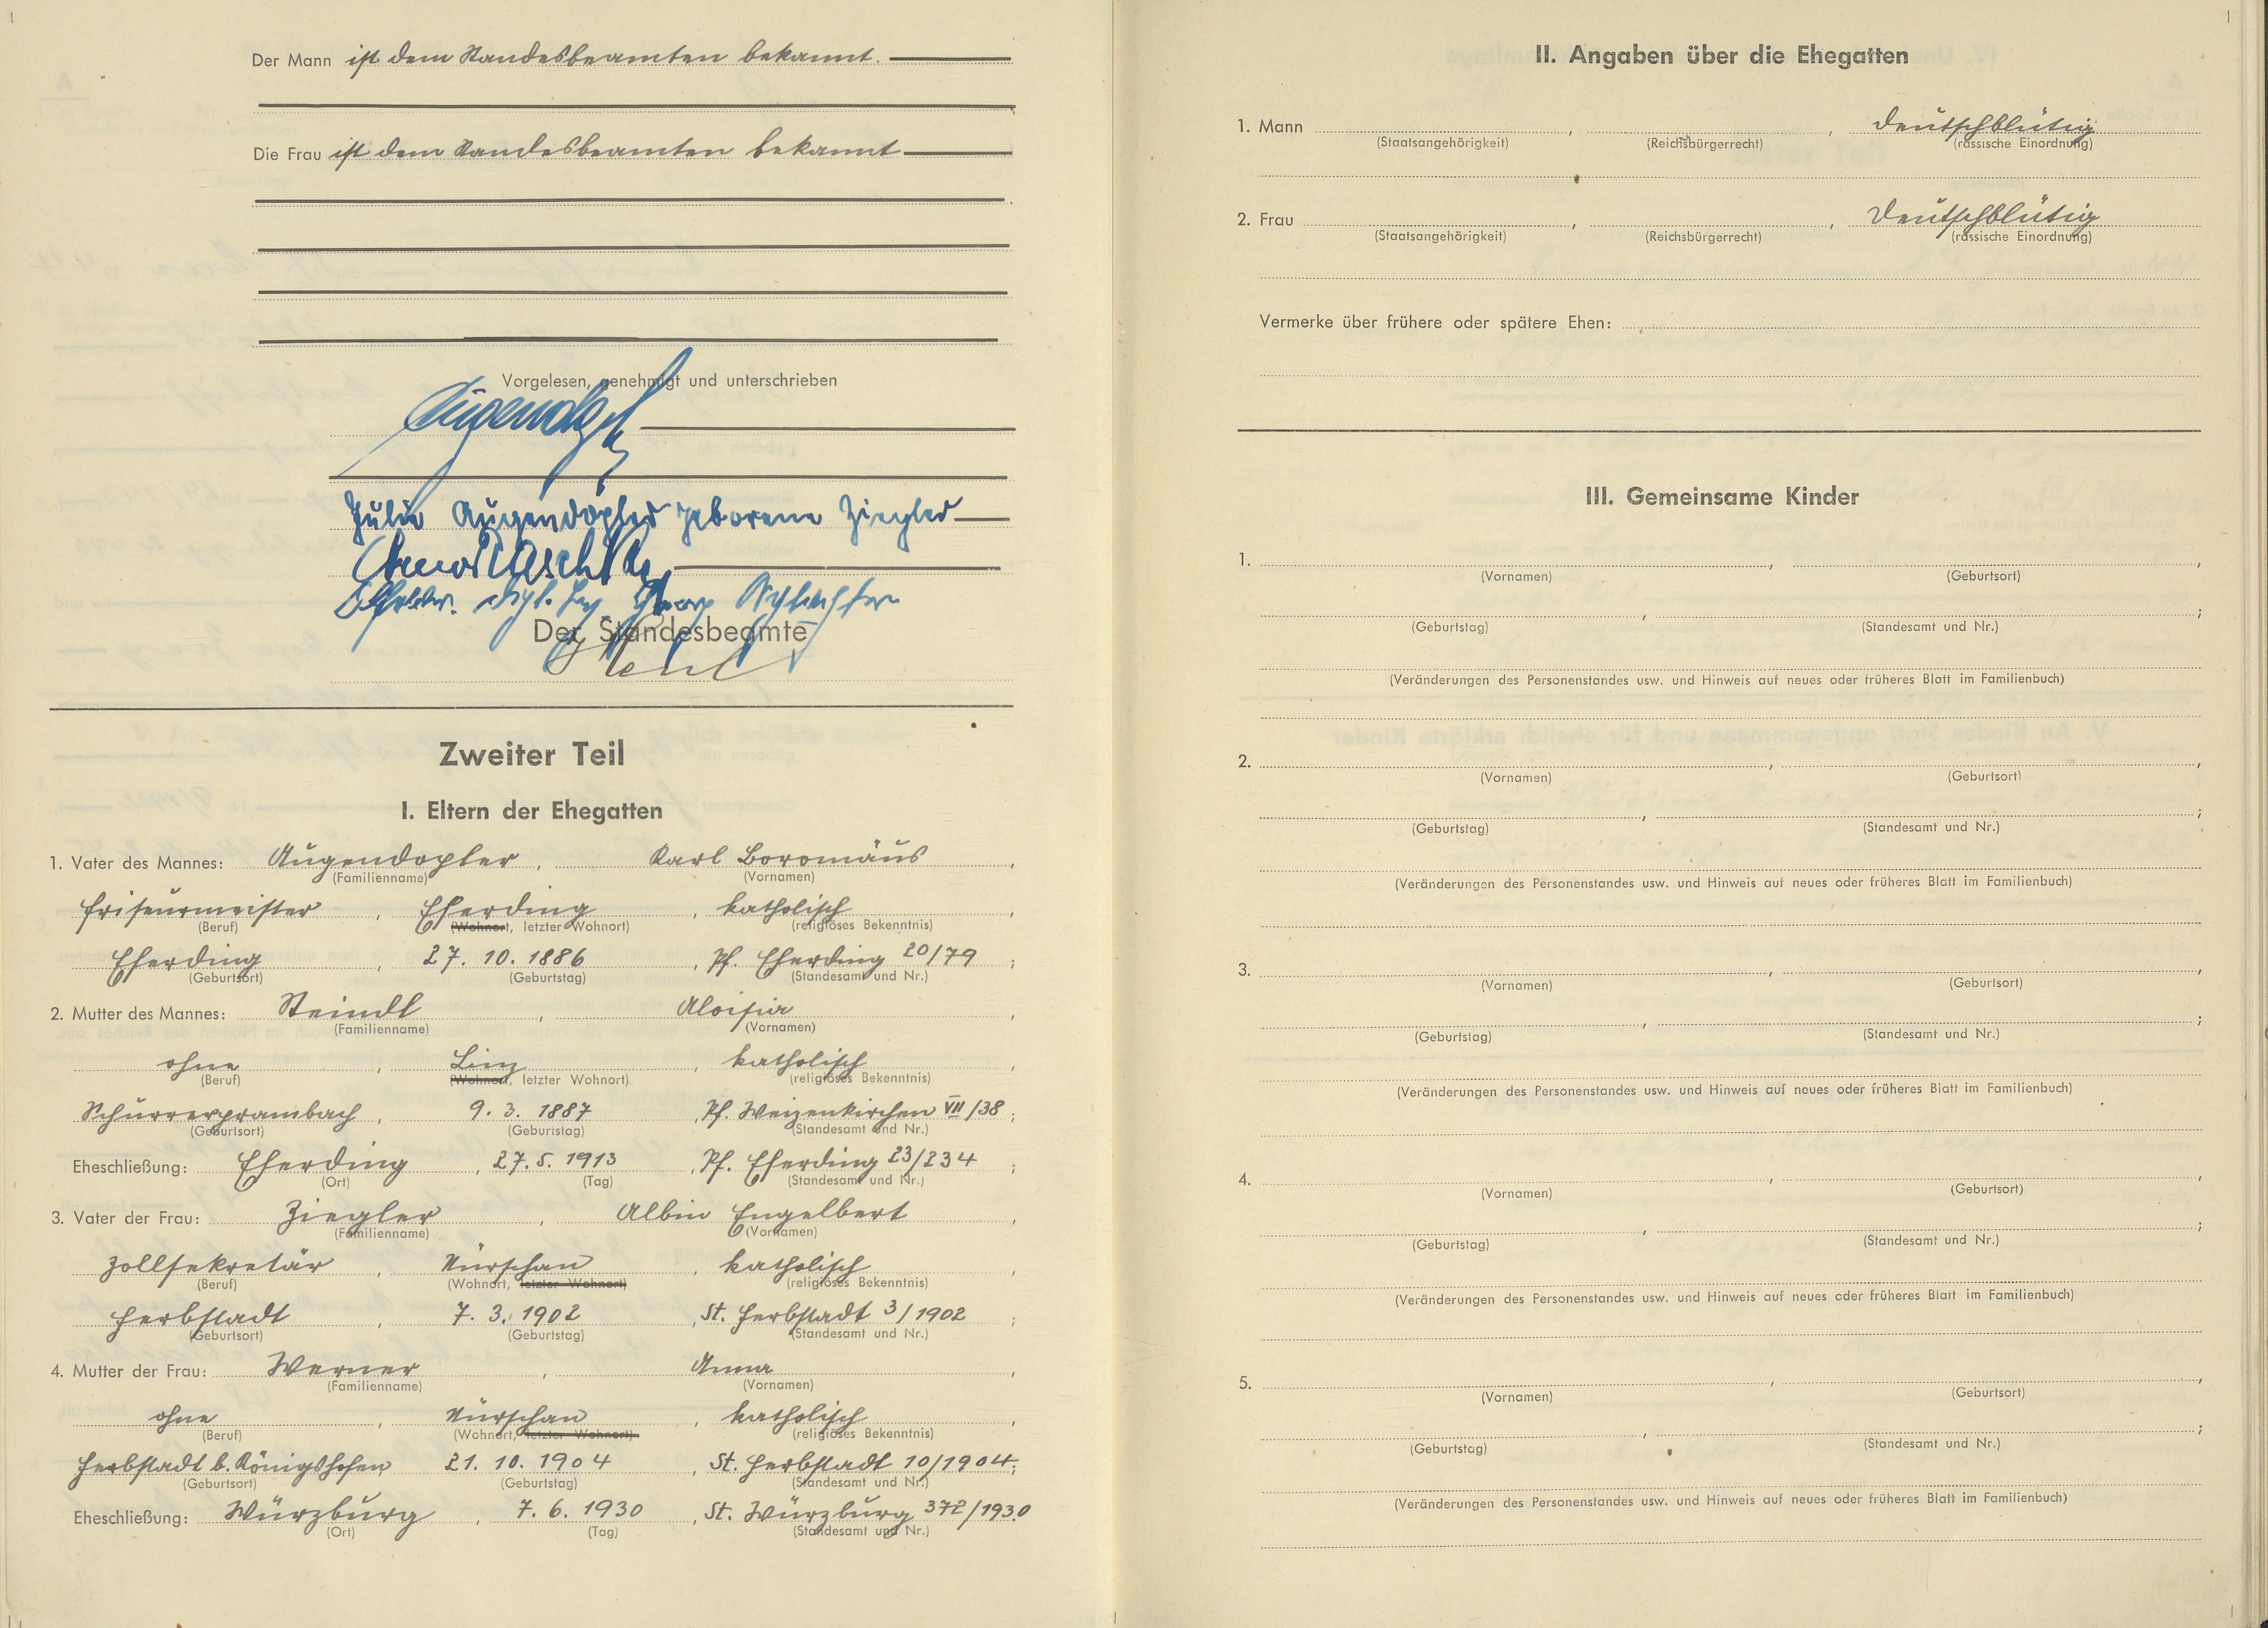 Der Mann ist dem Standesbeamten bekannt.
Die Frau ist dem Standesbeamten bekannt
Vorgelesen, genehmigt und unterschrieben
Julie Augendopler geborene Ziegler
Der Standesbeamte
Zweiter Teil
I. Eltern der Ehegatten
1. Vater des Mannes: Augendopler, Karl Boromäus,
(Familienname) (Vornamen)
Friseurmeister, Eferding, katholisch,
(Beruf) (Wohnort, letzter Wohnort) (religiöses Bekenntnis)
Eferding, 27. 10. 1886, Pf. Eferding 20/79;
(Geburtsort) (Geburtstag) (Standesamt und Nr.)
2. Mutter des Mannes: Steindl, Aloisia,
(Familienname) (Vornamen)
ohne, Linz, katholisch,
(Beruf) (Wohnort, letzter Wohnort) (religiöses Bekenntnis)
Schurrerprambach, 9. 3. 1887, Pf. Weizenkirchen VII/38;
(Geburtsort) (Geburtstag) (Standesamt und Nr.)
Eheschließung: Eferding, 27. 5. 1913, Pf. Eferding 23/234;
(Ort) (Tag) (Standesamt und Nr.)
3. Vater der Frau: Ziegler, Albin Engelbert,
(Familienname) (Vornamen)
Zollsekretär, Nürschan, katholisch,
(Beruf) (Wohnort, letzter Wohnort) (religiöses Bekenntnis)
Herbstadt, 7. 3. 1902, St. Herbstadt 3/1902;
(Geburtsort) (Geburtstag) (Standesamt und Nr.)
4. Mutter der Frau: Werner, Anna,
(Familienname) (Vornamen)
ohne, Nürschan, katholisch,
(Beruf) (Wohnort, letzter Wohnort) (religiöses Bekenntnis)
Herbstadt b. Königshofen, 21. 10. 1904, St. Herbstadt 10/1904;
(Geburtsort) (Geburtstag) (Standesamt und Nr.)
Eheschließung: Würzburg, 7. 6. 1930, St. Würzburg 372/1930
(Ort) (Tag) (Standesamt und Nr.)
II. Angaben über die Ehegatten
1. Mann , , deutschblütig
(Staatsangehörigkeit) (Reichsbürgerrecht) (rassische Einordnung)
2. Frau , , deutschblütig
(Staatsangehörigkeit) (Reichsbürgerrecht) (rassische Einordnung)
Vermerke über frühere oder spätere Ehen:
III. Gemeinsame Kinder
1. , ,
(Vornamen) (Geburtsort)
, ;
(Geburtstag) (Standesamt und Nr.)
(Veränderungen des Personenstandes usw. und Hinweis auf neues oder früheres Blatt im Familienbuch)
2. , ,
(Vornamen) (Geburtsort)
, ;
(Geburtstag) (Standesamt und Nr.)
(Veränderungen des Personenstandes usw. und Hinweis auf neues oder früheres Blatt im Familienbuch)
3. , ,
(Vornamen) (Geburtsort)
, ;
(Geburtstag) (Standesamt und Nr.)
(Veränderungen des Personenstandes usw. und Hinweis auf neues oder früheres Blatt im Familienbuch)
4. , ,
(Vornamen) (Geburtsort)
, ;
(Geburtstag) (Standesamt und Nr.)
(Veränderungen des Personenstandes usw. und Hinweis auf neues oder früheres Blatt im Familienbuch)
5. , ,
(Vornamen) (Geburtsort)
, ;
(Geburtstag) (Standesamt und Nr.)
(Veränderungen des Personenstandes usw. und Hinweis auf neues oder früheres Blatt im Familienbuch)